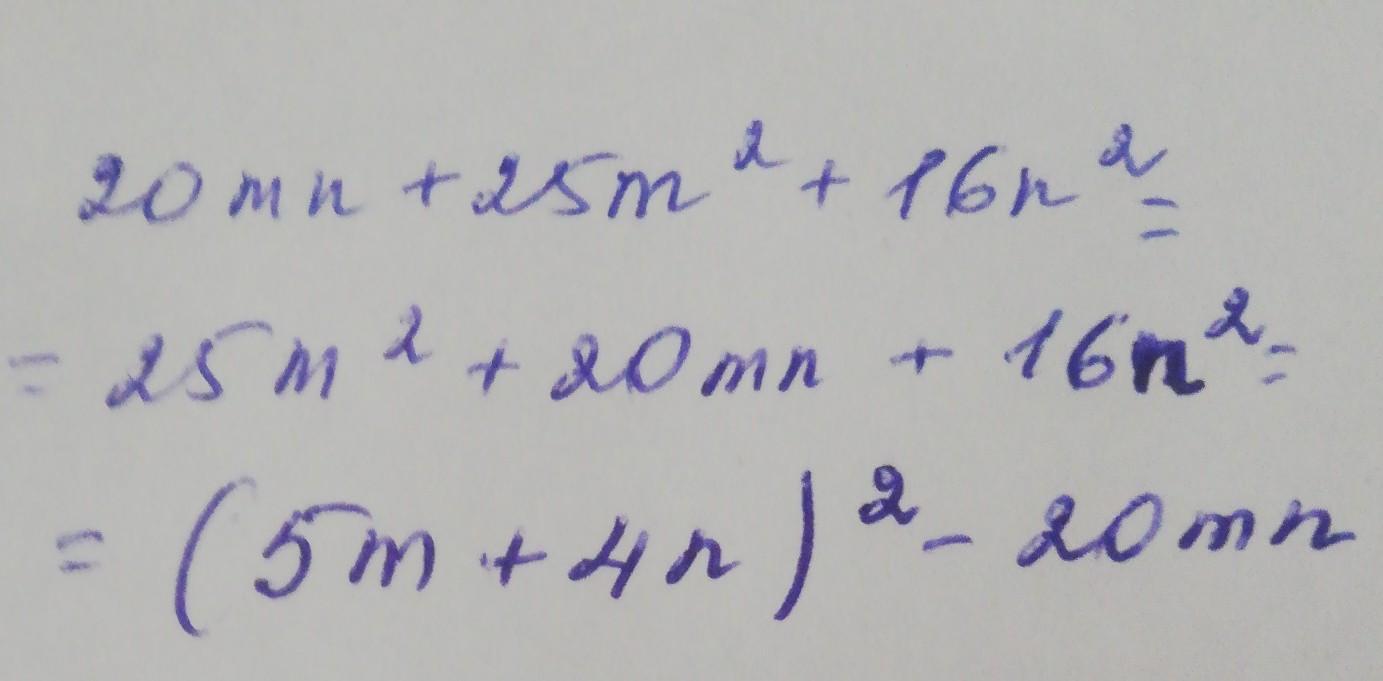 20mn + 25m² + 16n² =
= 25m² + 20mn + 16n² =
= (5m + 4n)² - 20mn